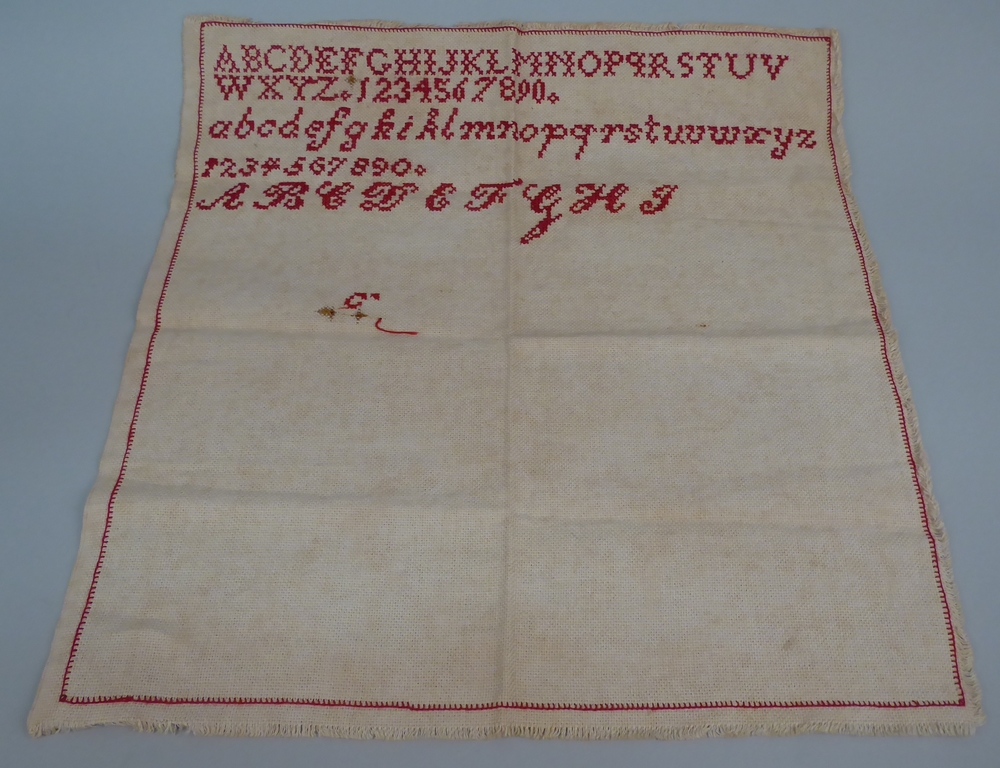 ABCDEFGHIJKLMNOPQRSTUV
WXYZ.1234567890.
abcdefghiklmnopqrstuvwxyz
1234567890.
A B C D E F G H I